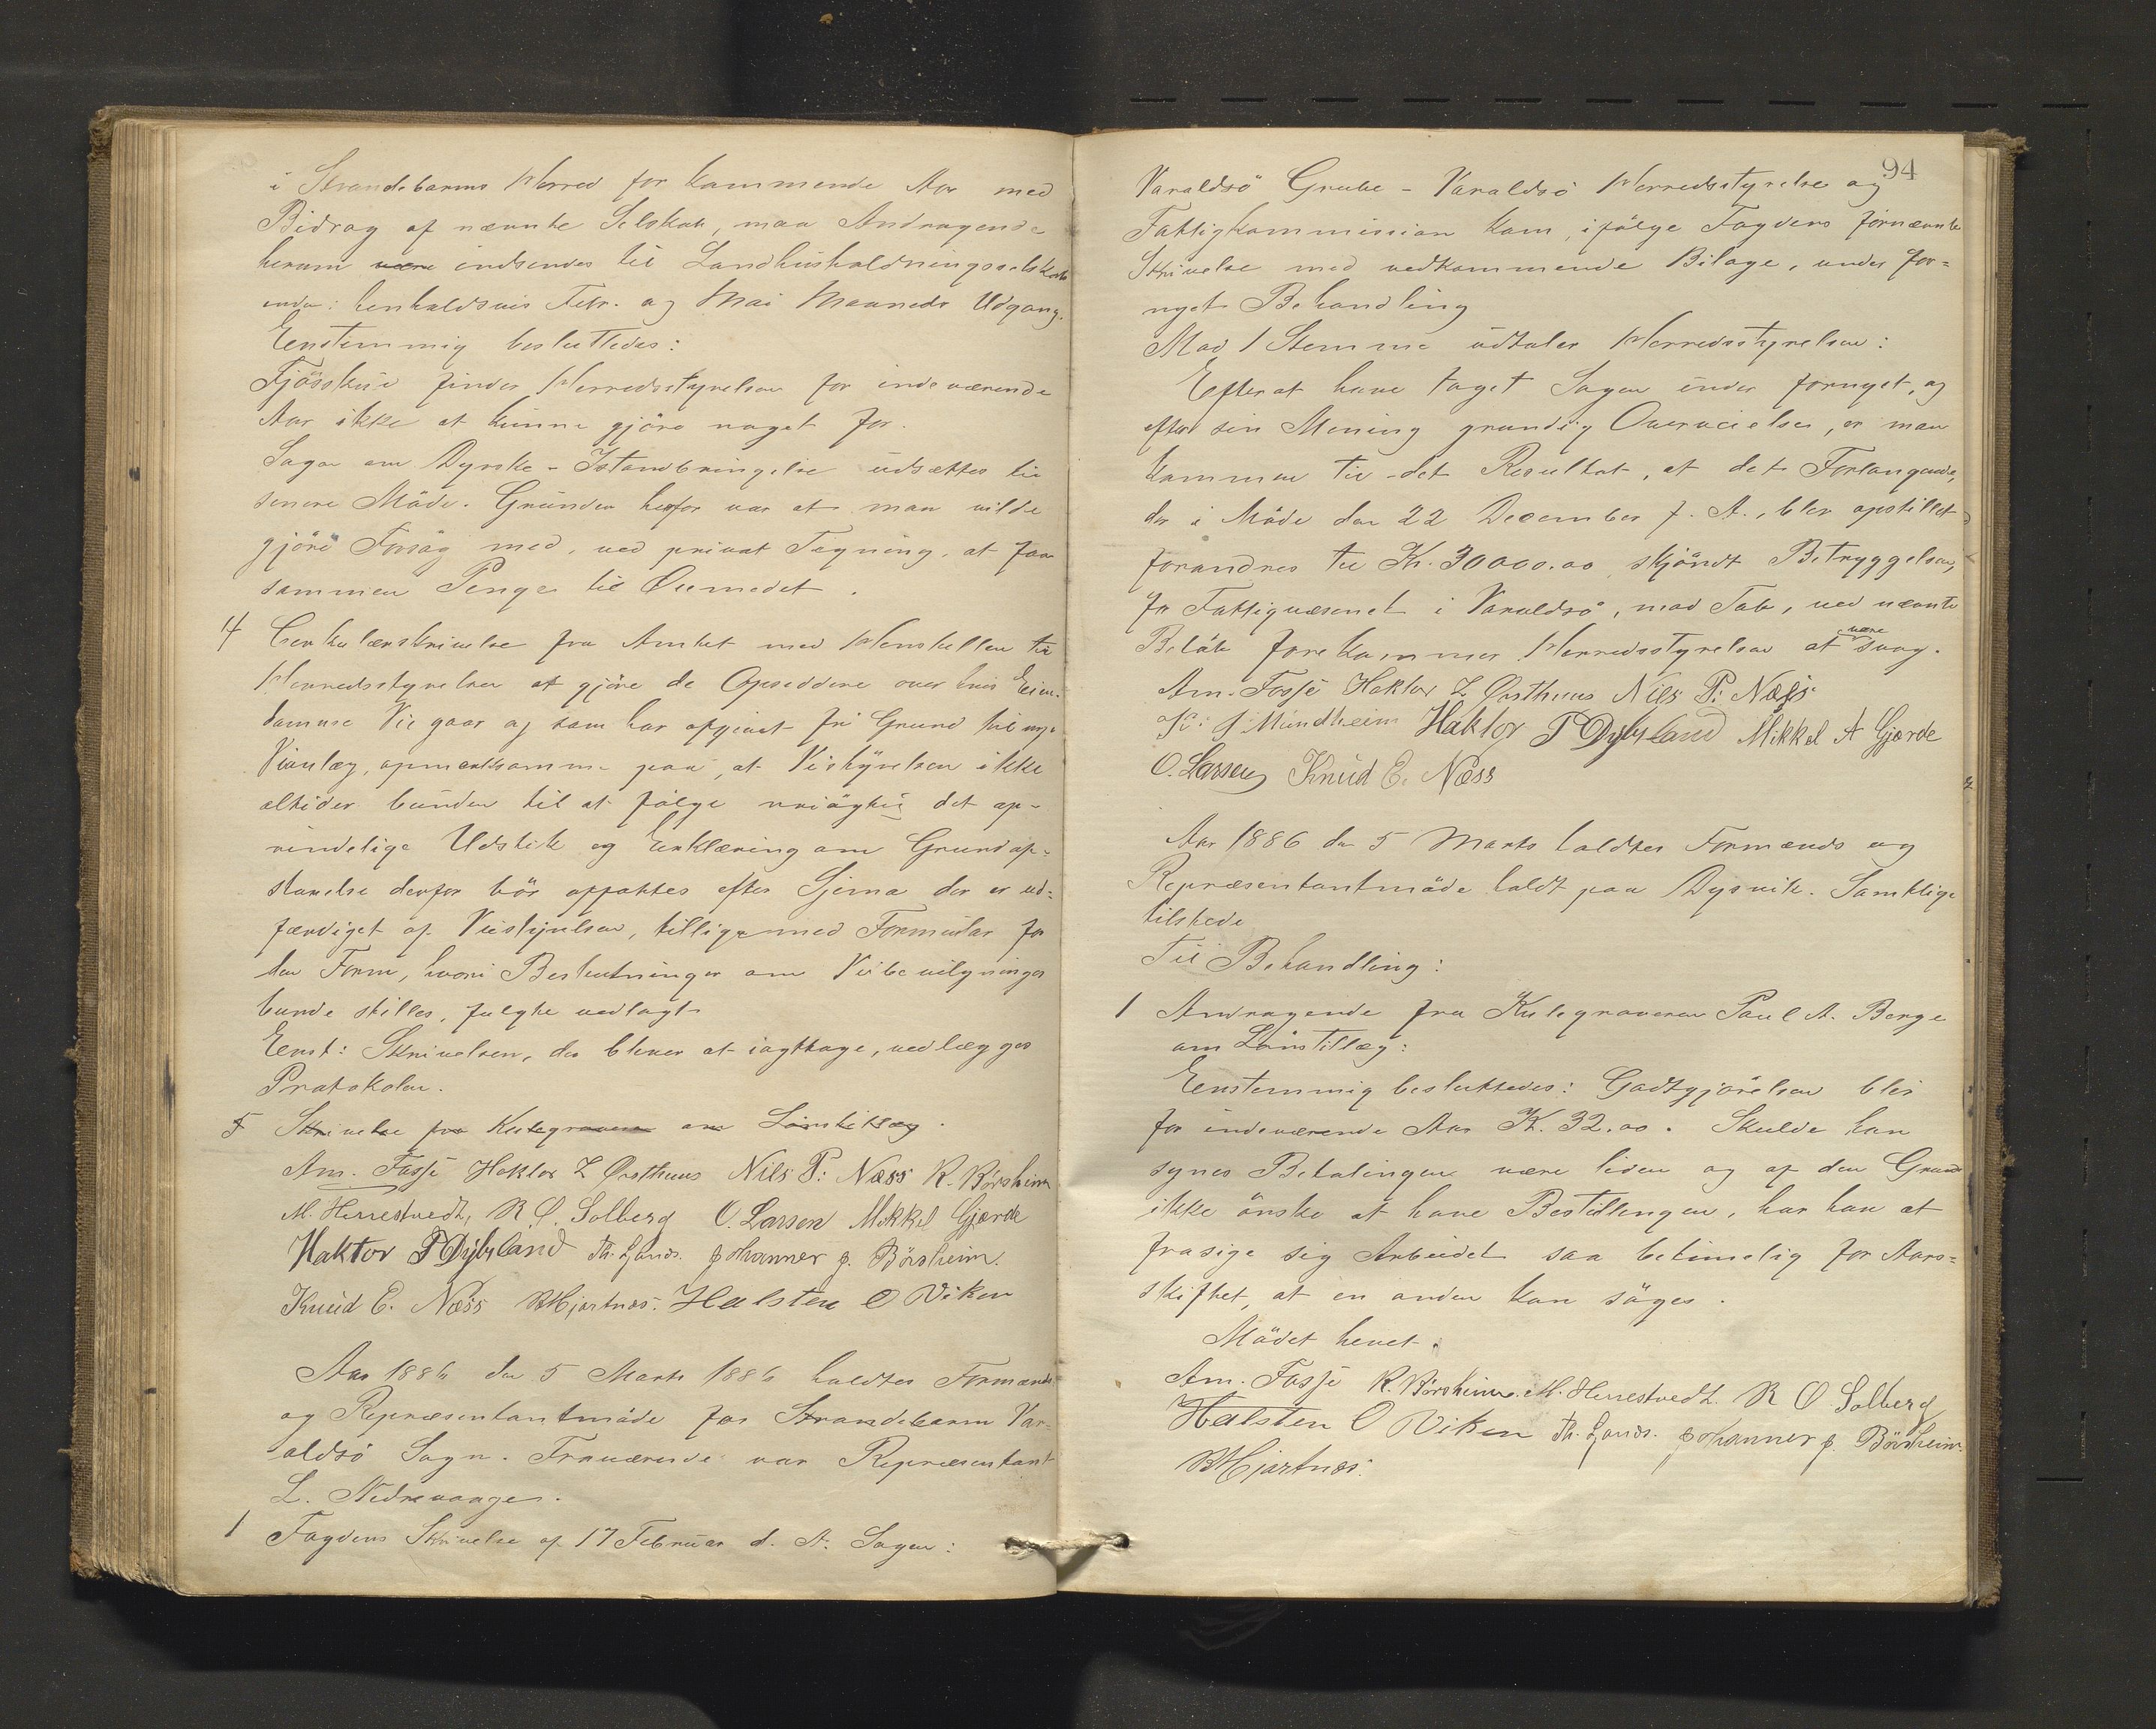 i Strandebarms Herred for kommende Aar med
Bidrag af nævnte Selskab, maa Andragende
herom være indsendes til Landhusholdningsselskabet
inden henholdsvis Febr. og Mai Maaneds Udgang.
Eenstemmig besluttedes:
Fjösskue finder Herredsstyrelsen for indeværende
Aar ikke at kunne gjöre noget for.
Sagen om Dyrske-Istandbringelse udsættes til
senere Möde. Grunden herfor var at man vilde
gjöre Forsög med, ved privat Tegning, at faa
sammen Penge til Öiemedet.
4 Cirkulærskrivelse fra Amtet med Henstillen til
Herredsstyrelsen at gjöre de Opsiddere over hvis Eien-
domme Vei gaar og som har afgivet fri Grund til nye
Veianlæg, opmerksomme paa, at Veistyrelsen ikke
altider bunden til at fölge nöiagtig det op-
rindelige Udstik og Erklæring om Grundaf-
staaelse derfor bör opsættes efter Sjema der er ud-
færdiget af Veistyrelsen, tilligemed Formular for
den Form, hvori Beslutninger om Veibevilgninger
burde stilles, fulgte vedlagt
Eenst: Skrivelsen, der bliver at iagttage, vedlægges
Protokolen.
5 Skrivelse fra Kulegraveren om Lönstillæg.
Am. Fosse Haktor L Örsthuus Nils P: Næss R. Börsheim
M. Herrestvedt, R O. Solberg O. Larsen Mikkel Gjærde
Haktor T Dybsland Th. Ljones. Johannes J. Börsheim.
Knud E. Næss BHjartnes. Halsten O Viken
Aar 1886 den 5 Marts 1886 holdtes Formænds
og Repræsentantmöde for Strandebarm Var-
aldsö Sogn. Fraværende var Repræsentant
L. Nedrevaage.
1 Fogdens Skrivelse af 17 Februar d. A. Sagen:
94
Varaldsö Grube - Varaldsö Herredsstyrelse og
Fattigkommission kom, ifölge Fogdens fornævnte
Skrivelse med vedkommende Bilage, under for-
nyet Behandling
Mod 1 Stemme udtaler Herredsstyrelsen:
Efterat have taget Sagen under fornyet, og
efter sin Mening grundig Overveielse, er man
kommen til det Resultat, at det Forlangende,
der i Möde den 22 December f. A., blev opstillet
forandres til Kr. 30000.00 skjöndt Betryggelsen,
for Fattigvæsenet i Varaldsö, mod Tab, ved nævnte
Belöb forekommer Herredsstyrelsen at være svag.
Am. Fosse Haktor L Örsthuus Nils P: Næss.
J Mundheim Haktor T Dybsland Mikkel A Gjærde
O. Larsen Knud E. Næss
Aar 1886 den 5 Marts holdtes Formænds og
Repræsentantmöde holdt paa Dysvik. Samtlige
tilstede
Til Behandling:
1 Andragende fra Kulegraveren Paul A. Berge
om Lönstillæg:
Eenstemmig besluttedes: Godtgjörelsen blir
for indeværende Aar K. 32.00. Skulde han
synes Betalingen være liden og af den Grund
ikke önske at have Bestillingen, har han at
frasige sig Arbeidet saa betimelig för Aars-
skiftet, at en anden kan söges.
Mödet hevet.
Am. Fosse R. Börsheim. M. Herrestvedt. R O. Solberg
Halsten O Viken Th. Ljones. Johannes J. Börsheim.
BHjartnes.